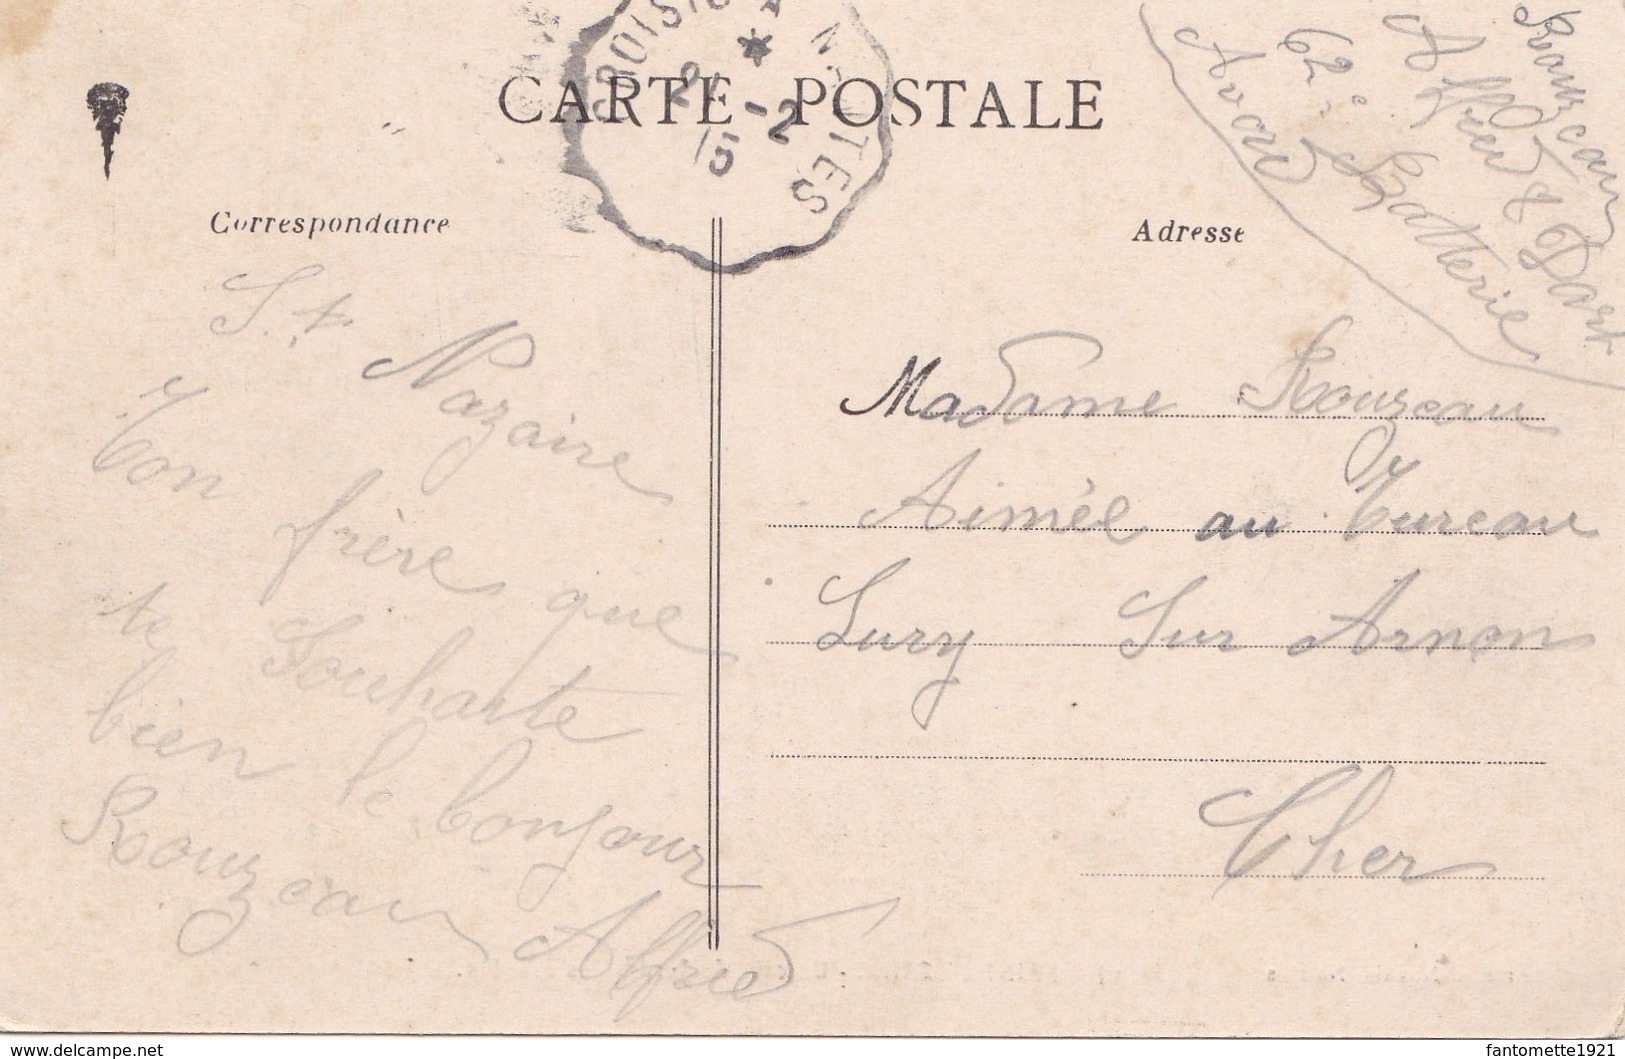 CARTE POSTALE
21-2
15
NANTES
Correspondance
Adresse
St Nazaire
Ton frère que
te Souhaite
bien le bonjour
Rouzeau Alfred
Rouzeau
Alfred
62e Batterie
Avord
Madame Rouzeau
Aimée au Tureau
Lury Sur Arnon
Cher
www.delcampe.net
fantomette1921